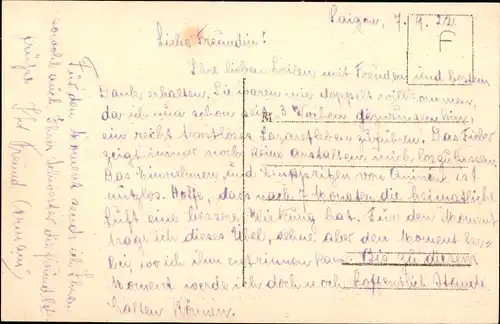 Saigon, 7.9.22.
F
Liebe Freundin!
Ihre lieben Zeilen mit Freuden und bestem
Dank erhalten. Sie waren mir doppelt willkommen,
da ich nun schon seit 3 Wochen gezwungen bin,
ein recht trostloses Lazarettleben zu führen. Das Fieber
zeigt immer noch keine anstalten, mich loszulassen.
Das Einnehmen und Einspritzen von Chinin ist
nutzlos. Hoffe, dass nach 7 Monaten die heimatliche
Luft eine bessere Wirkung hat. Für den Moment
trage ich dieses Übel, sehne aber den Moment her-
bei, wo ich ihm entrinnen kann. Bis zu diesem
Moment werde ich doch noch hoffentlich Stand
halten können.
Für den Moment sende ich Ihnen
sowohl auch Ihrer Schwester die freundlichst.
grüße Ihr Freund